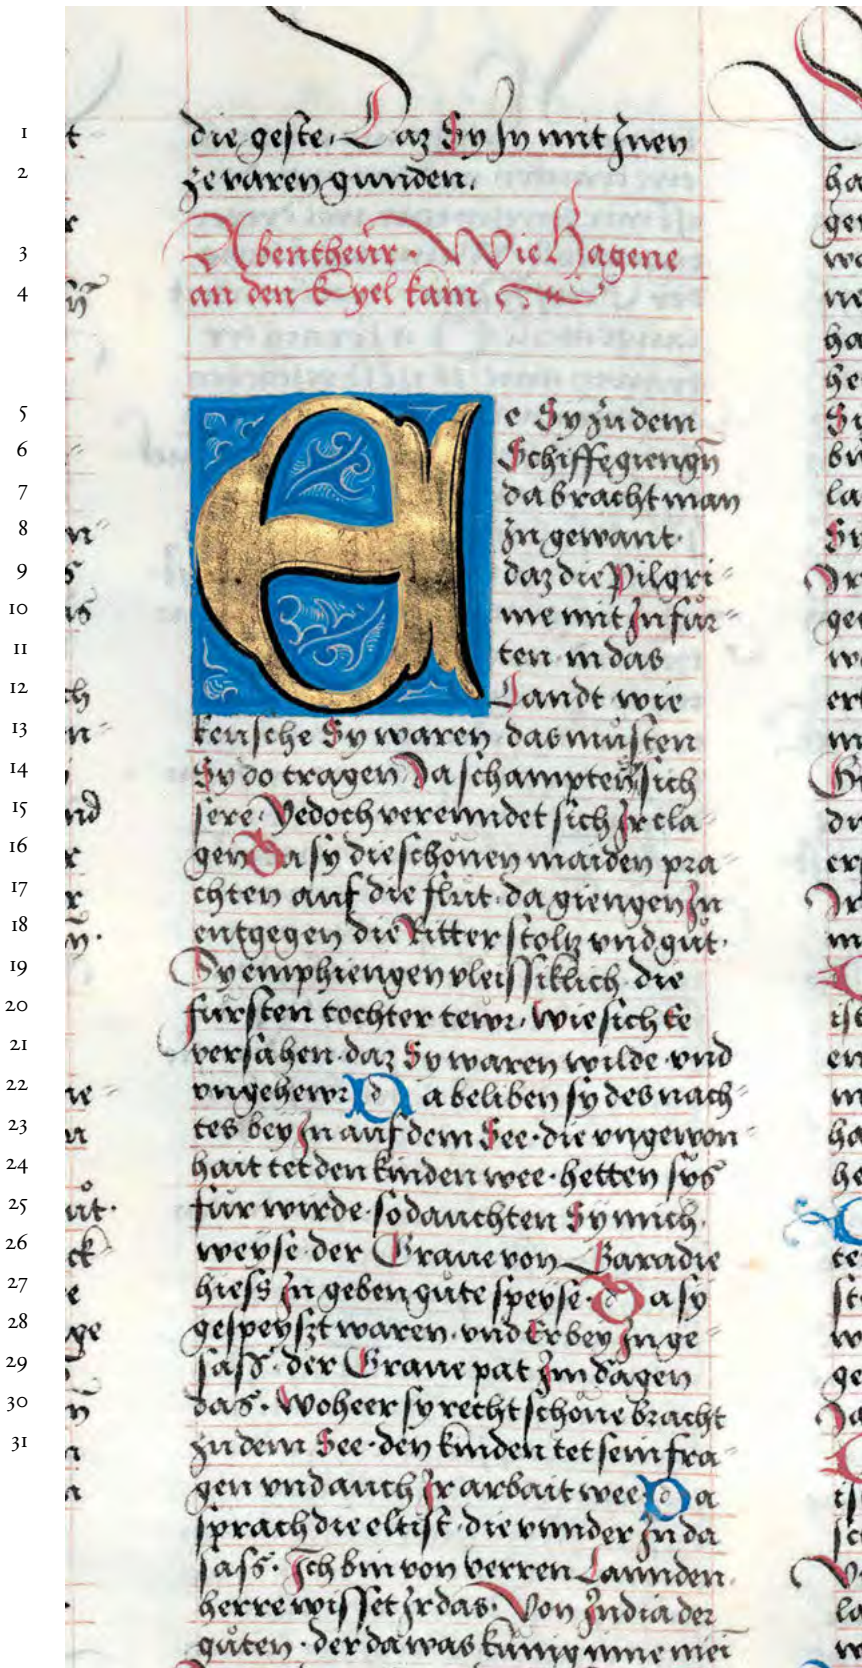 1 die geste. Daz Sy Jn mit Jnen
2 ze varen gunden.
3 Abentheur. Wie Hagene
4 an den Kyel kam
5 E e Sy zu dem
6 Schiffe giengn̄
7 da bracht man
8 Jn gewant.
9 daz die Pilgri=
10 me mit Jn fůr=
11 ten in das
12 Landt wie
13 keusche Sy waren das můsten
14 Sy do tragen Da schampten sich
15 sere. Yedoch verenndet sich Jr cla=
16 gen Da sy die schönen maiden pra=
17 chten auf die flůt. da giengen Jn
18 entgegen die Ritter stoltz vnd gůt.
19 Sy emphiengen vleissiklich die
20 fürsten tochter tewr. wie sich Ee
21 versahen. daz Sy waren wilde vnd
22 vngehewr Da beliben sy des nach=
23 tes bey Jn auf dem See. die vngewon=
24 hait tet den kinden wee. hetten sys
25 für wirde. so dauchten Sy mich.
26 weyse. der Graue von Garadie
27 hiess Jn geben gůte speyse. Da sy
28 gespeyszt waren. vnd Er bey Jn ge=
29 sass. der Graue pat Jm sagen
30 das. Woheer sy recht schöne bracht
31 zu dem See. den kinden tet sein fra=
gen vnd auch Jr arbait wee. Da
sprach die eltist. die vnnder Jn da
sass. Jch bin von verren Lannden.
herre wisset Jr das. Von Jndia der
gůten. der da was künig inne mei